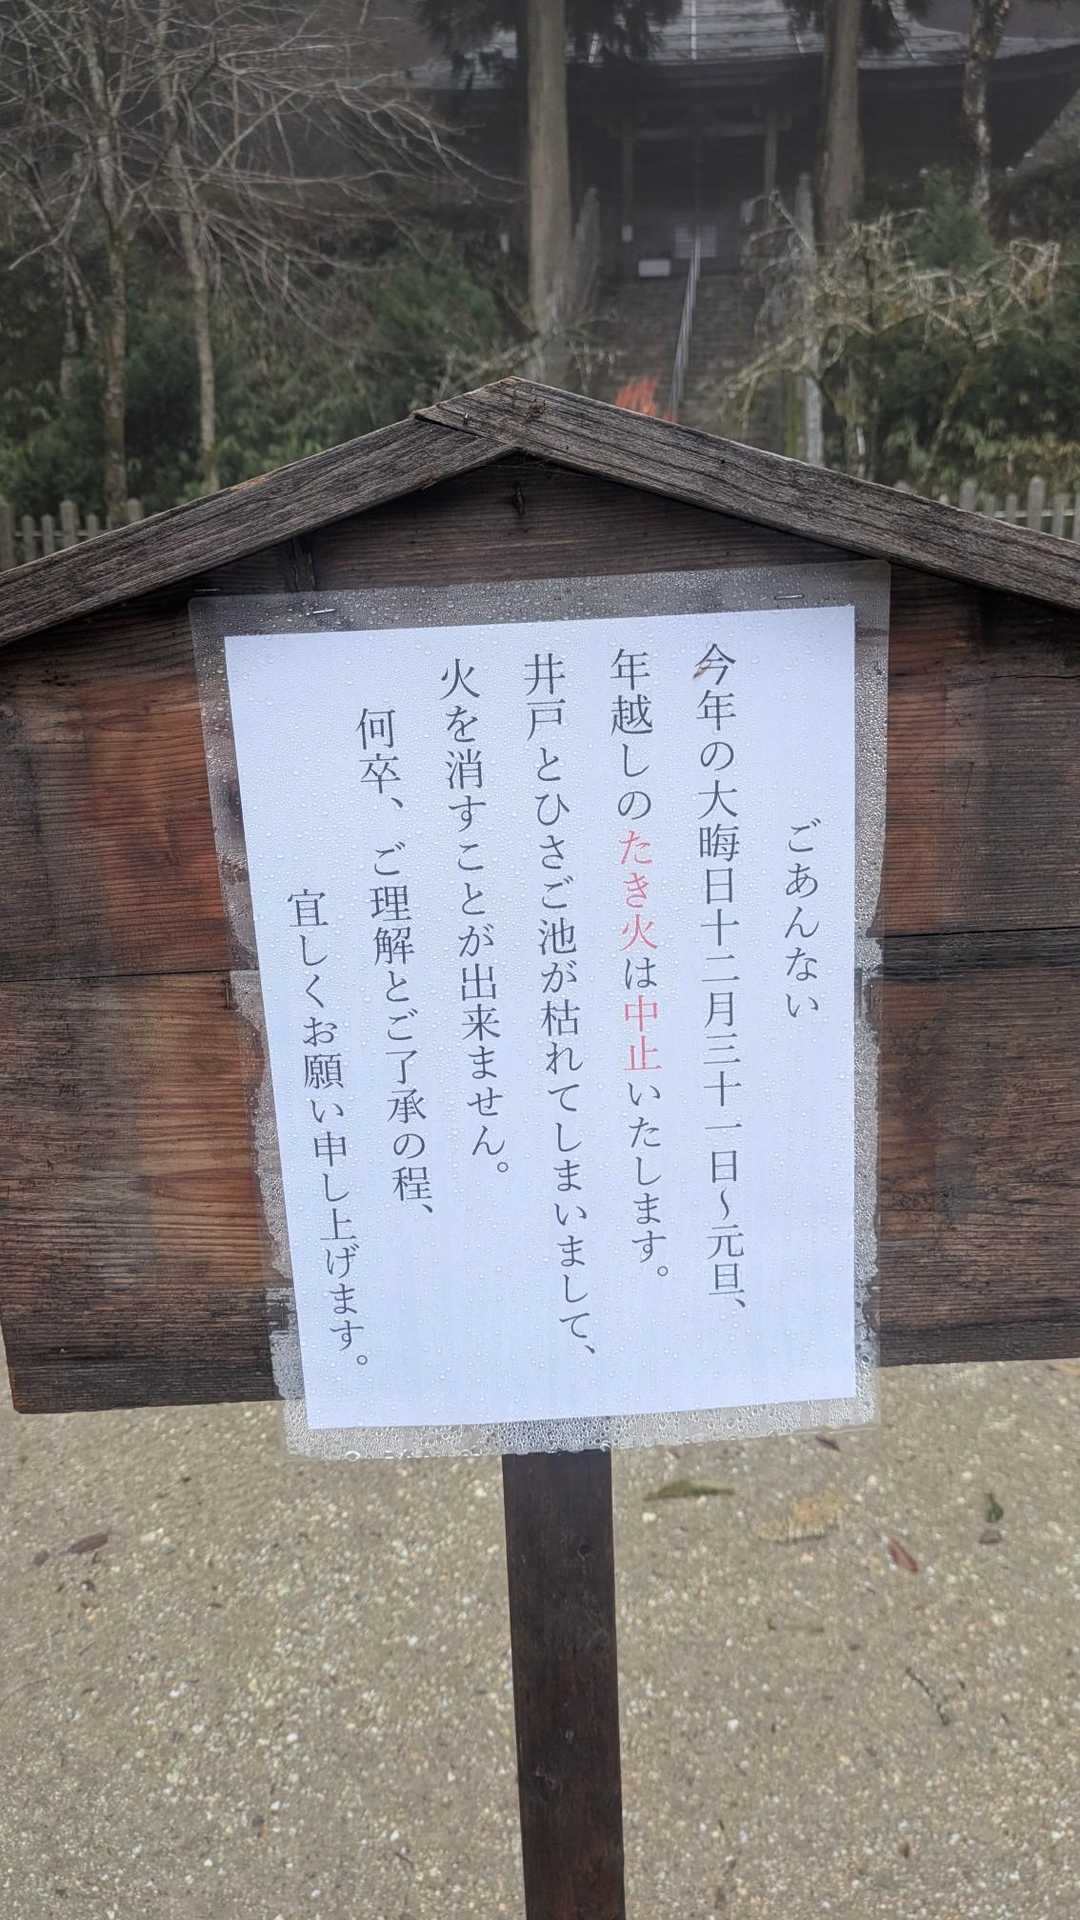 ごあんない
今年の大晦日十二月三十一日～元旦、
年越しのたき火は中止いたします。
井戸とひさご池が枯れてしまいまして、
火を消すことが出来ません。
何卒、ご理解とご了承の程、
宜しくお願い申し上げます。